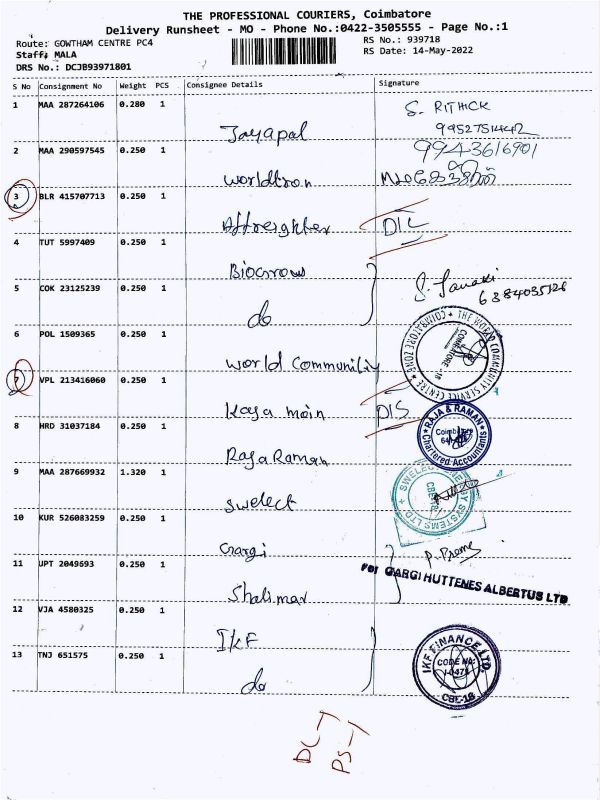 THE PROFESSIONAL COURIERS, Coimbatore
Delivery Runsheet - MO - Phone No.:0422-3505555 - Page No.:1
Route: GOWTHAM CENTRE PC4
RS No.: 939718
Staff: MALA
RS Date: 14-May-2022
DRS No.: DCJB93971801
S No Consignment No Weight PCS Consignee Details Signature
1 MAA 287264106 0.280 1 Jayapal S. RITHICK
2 MAA 290597545 0.250 1 Worldtron 9943616901
3 BLR 415707713 0.250 1 Affreighter D/L
4 TUT 5997409 0.250 1 Biocrows
5 COK 23125239 0.250 1 do S. Janaki
6 POL 1509365 0.250 1 World Community
THE WORLD COMMUNITY SERVICE CENTRE
7 VPL 213416060 0.250 1 Kasa main D/S
8 HRD 31037184 0.250 1 Raja Raman
RAJA & RAMAN
Coimbatore
Chartered Accountants
9 MAA 287669932 1.320 1 Swelect
CBE-18
10 KUR 526083259 0.250 1 Gargi
P. Prema
11 UPT 2049693 0.250 1 Shalimar
For GARGI HUTTENES ALBERTUS LTD
12 VJA 4580325 0.250 1 IKF
13 TNJ 651575 0.250 1 do
IKF FINANCE LTD.
CODE No:
CBE-18
DL-1
PS-1